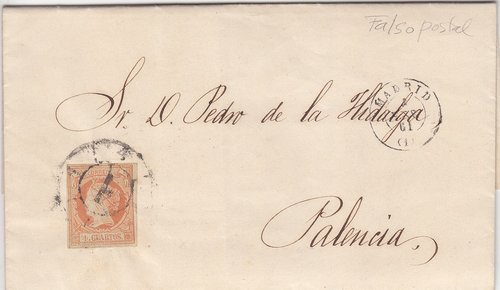 Falso postal
Sr. D. Pedro de la Hidalga
MADRID
61
(1)
4 CUARTOS.
Palencia,